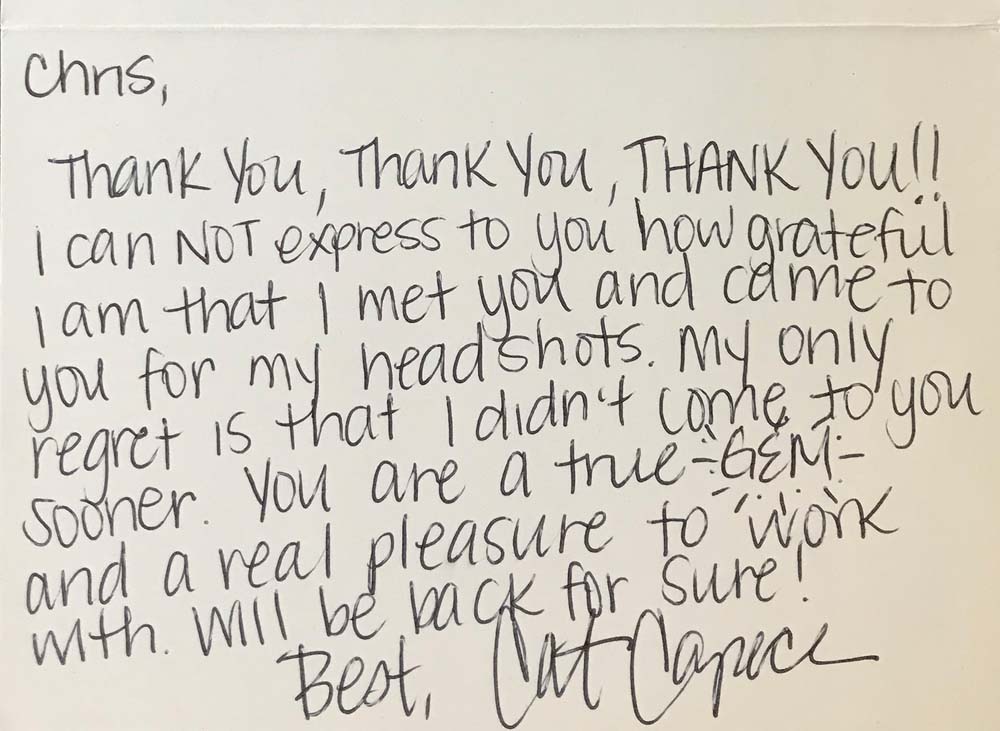 Chris,
Thank You, Thank You, THANK YOU!!
I can NOT express to you how grateful
I am that I met you and came to
you for my headshots. My only
regret is that I didn't come to you
sooner. You are a true -GEM-
and a real pleasure to work
with. Will be back for sure!
Best, Cat Capece